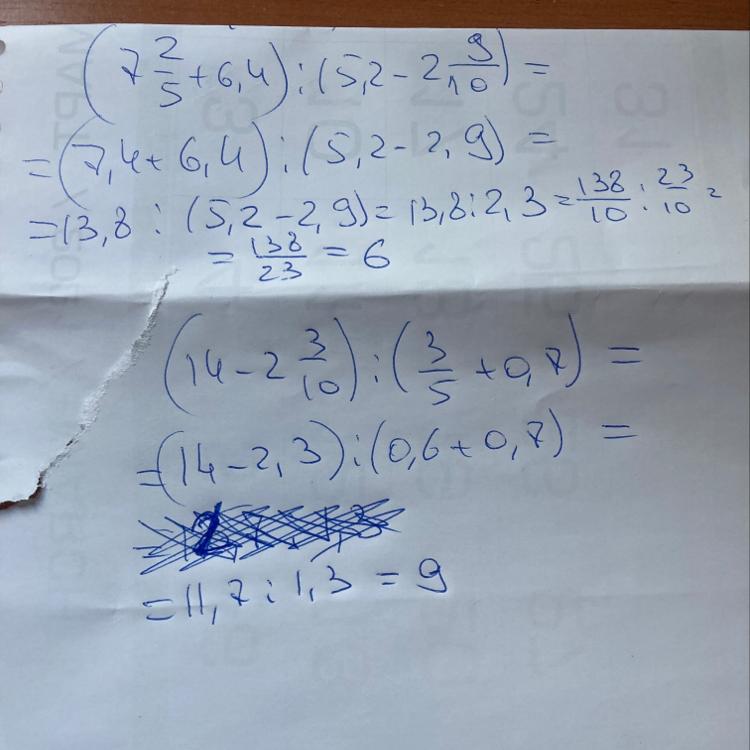 (7 2/5 + 6,4) : (5,2 - 2 9/10) =
= (7,4 + 6,4) : (5,2 - 2,9) =
= 13,8 : (5,2 - 2,9) = 13,8 : 2,3 = 138/10 : 23/10 =
= 138/23 = 6
(14 - 2 3/10) : (3/5 + 0,7) =
= (14 - 2,3) : (0,6 + 0,7) =
= 11,7 : 1,3 = 9